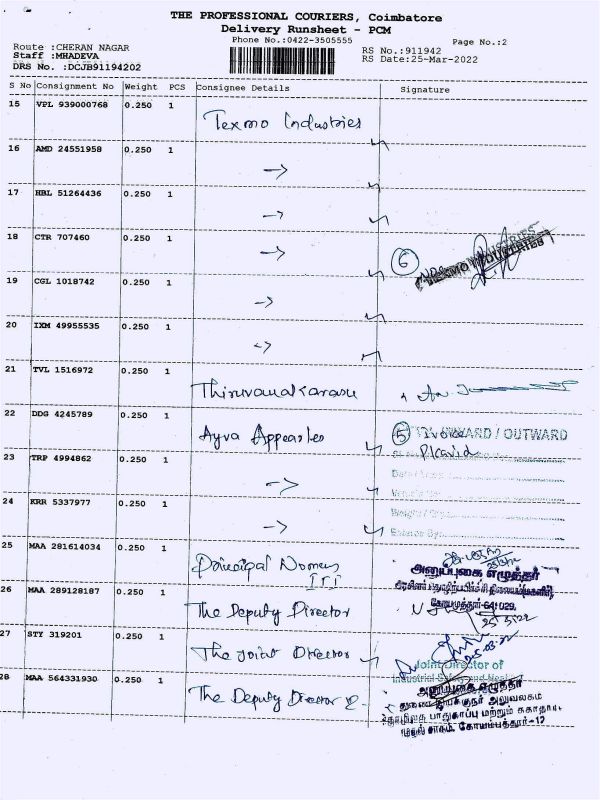 THE PROFESSIONAL COURIERS, Coimbatore
Delivery Runsheet - PCM
Phone No.:0422-3505555
Page No.:2
Route :CHERAN NAGAR
Staff :MHADEVA
DRS No. :DCJB91194202
RS No.:911942
RS Date:25-Mar-2022
S No Consignment No Weight PCS Consignee Details Signature
15 VPL 939000768 0.250 1 Texmo Industries
16 AMD 24551958 0.250 1 →
17 HBL 51264436 0.250 1 →
18 CTR 707460 0.250 1 → 6
TEXMO INDUSTRIES
19 CGL 1018742 0.250 1 →
20 IXM 49955535 0.250 1 →
21 TVL 1516972 0.250 1
22 DDG 4245789 0.250 1 5 INWARD / OUTWARD
23 TRP 4994862 0.250 1 →
24 KRR 5337977 0.250 1 →
25 MAA 281614034 0.250 1 ITI
அனுப்புகை எழுத்தர்
கோயமுத்தூர்-641029.
26 MAA 289128187 0.250 1 The Deputy Director
27 STY 319201 0.250 1 The Joint Director
Joint Director of
Industrial Safety and
28 MAA 564331930 0.250 1 The Deputy Director
அனுப்புகை எழுத்தர்
துணை இயக்குநர் அலுவலகம்